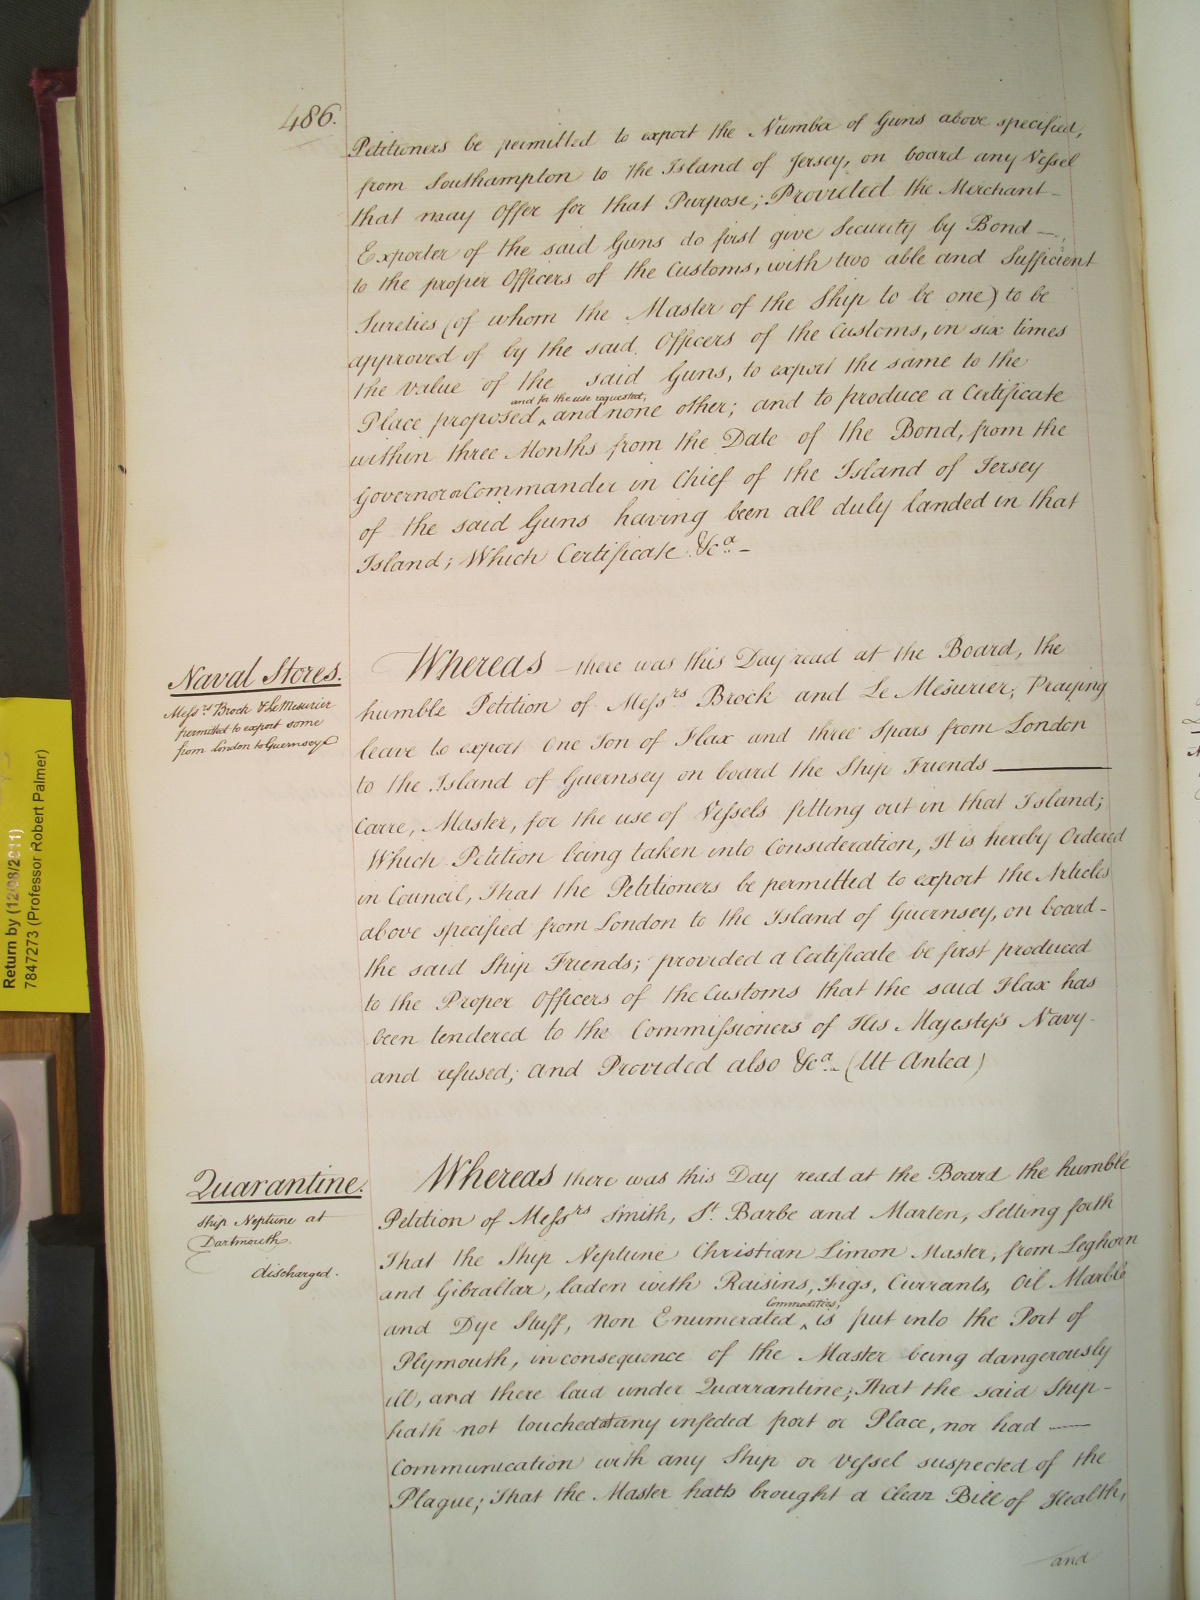 486.
Petitioners be permitted to export the Number of Guns above specified,
from Southampton to the Island of Jersey, on board any Vessel
that may Offer for that Purpose; Provided the Merchant
Exporter of the said Guns do first give Security by Bond —
to the proper Officers of the Customs, with two able and Sufficient
Sureties (of whom the Master of the Ship to be one) to be
approved of by the said Officers of the Customs, in six times
the value of the said Guns, to export the same to the
and for the use requested,
Place proposed ‸ and none other; and to produce a Certificate
within three Months from the Date of the Bond, from the
Governor or Commander in Chief of the Island of Jersey
of the said Guns having been all duly landed in that
Island; Which Certificate &ca. –
Naval Stores.
Messrs. Brock & Le Mesurier
permitted to export some
from London to Guernsey
Whereas there was this Day read at the Board, the
humble Petition of Messrs Brock and Le Mesurier, Praying
leave to export One Ton of Flax and three Spars from London
to the Island of Guernsey on board the Ship Friends ———
Carre, Master, for the use of Vessels fitting out in that Island;
Which Petition being taken into Consideration, It is hereby Ordered
in Council, That the Petitioners be permitted to export the Articles
above specified from London to the Island of Guernsey, on board
the said Ship Friends; provided a Certificate be first produced
to the Proper Officers of the Customs that the said Flax has
been tendered to the Commissioners of His Majesty's Navy
and refused; and Provided also &ca. – (Ut Antea)
Quarantine.
Ship Neptune at
Dartmouth
discharged.
Whereas there was this Day read at the Board the humble
Petition of Messrs Smith, St. Barbe and Marten, Setting forth
That the Ship Neptune Christian Limon Master, from Leghorn
and Gibraltar, laden with Raisins, Figs, Currants, Oil Marble
Commodities,
and Dye Stuff, Non Enumerated ‸ is put into the Port of
Plymouth, in consequence of the Master being dangerously
ill, and there laid under Quarrantine; That the said Ship
hath not touched at any infected port or Place, nor had —
Communication with any Ship or Vessel suspected of the
Plague; That the Master hath brought a Clean Bill of Health,
and
Return by (12/08/2011)
7847273 (Professor Robert Palmer)